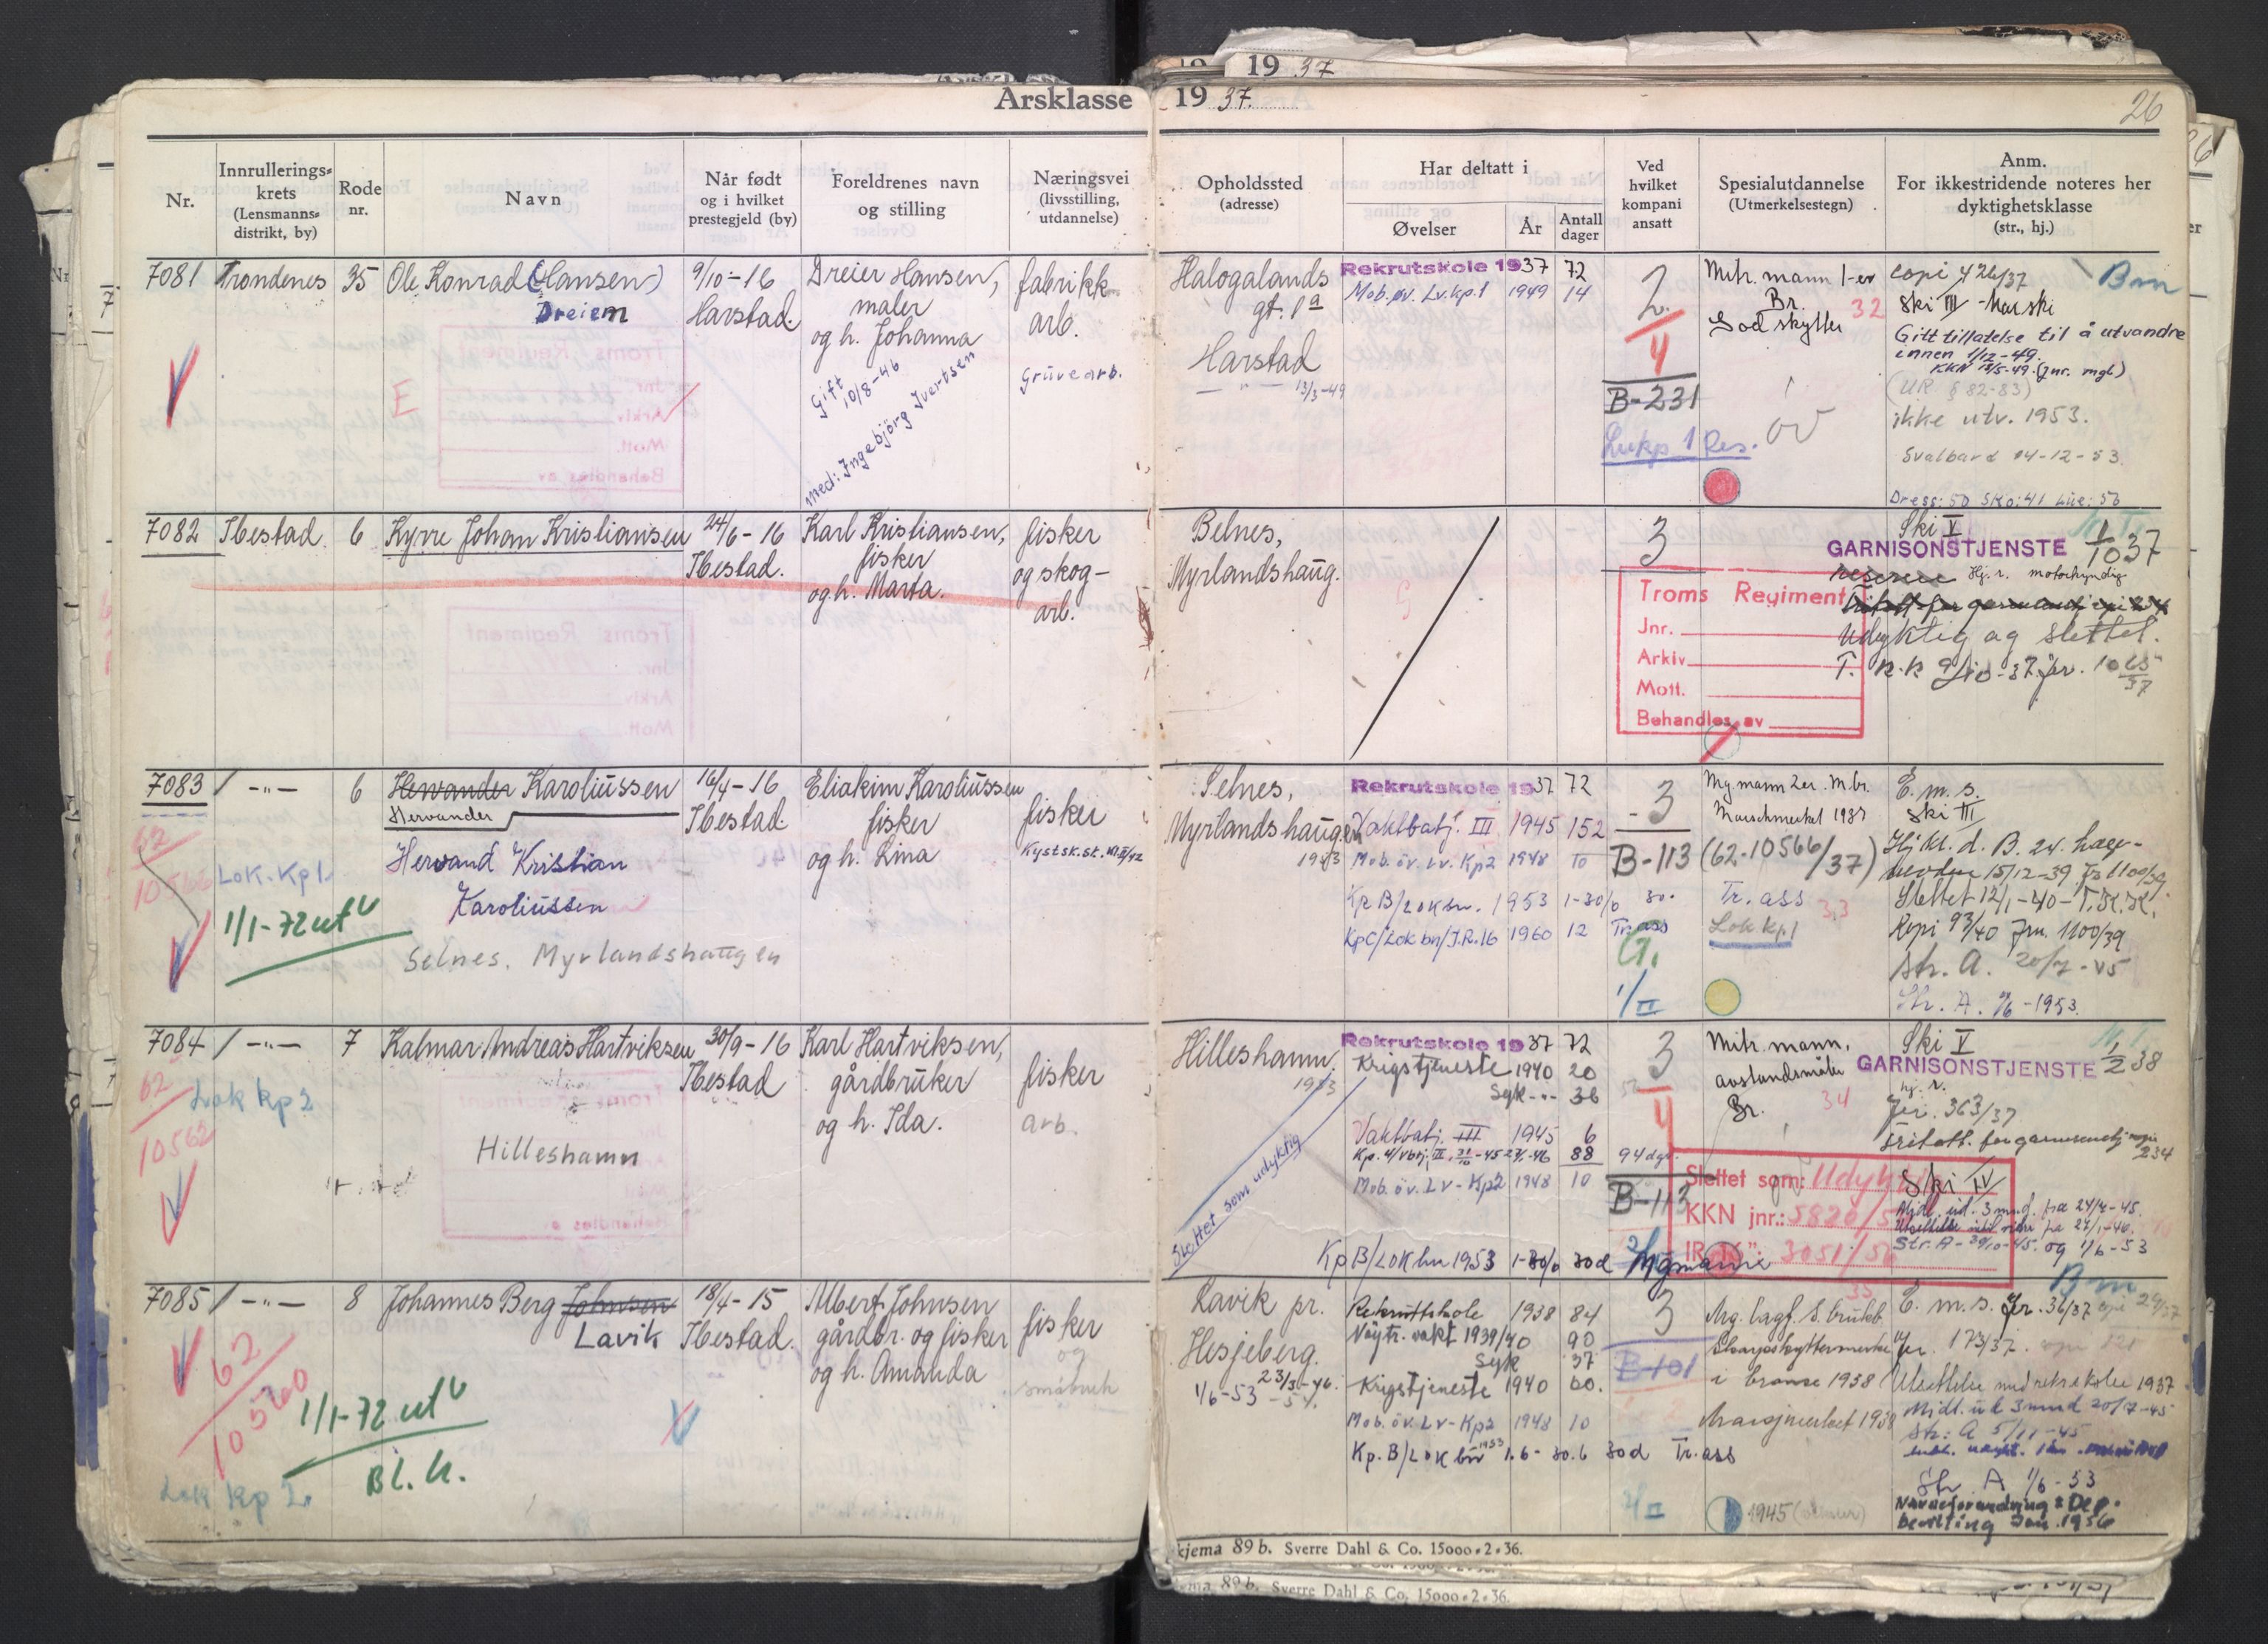 19 37
Årsklasse 19 37.
26
Nr.
Innrullerings-
krets
(Lensmanns-
distrikt, by)
Rode
nr.
Navn
Når født
og i hvilket
prestegjeld (by)
Foreldrenes navn
og stilling
Næringsvei
(livsstilling,
utdannelse)
Opholdssted
(adresse)
Har deltatt i
Øvelser
År
Antall
dager
Ved
hvilket
kompani
ansatt
Spesialutdannelse
(Utmerkelsestegn)
Anm.
For ikkestridende noteres her
dyktighetsklasse
(str., hj.)
7081 Trondenes 35 Ole Konrad (Hansen)
Dreiem
E
9/10-16
Harstad
Dreier Hansen,
maler
og h. Johanna
Gift
10/8-46
med: Ingebjörg Ivertsen
fabrikk
arb.
Gruvearb.
Halogalands
gt. 1a
Harstad
— " — 13/3-49
Rekrutskole 1937 72
Mob. øv. Lv.kp.1 1949 14
2.
4
B-231
Lvkp 1 Res.
Mitr. mann 1-er
Br. 32
God skytter
Bm
Ski III - Marski
Gitt tillatelse til å utvandre
innen 1/12-49.
KKN 13/5-49. (jnr. mgl)
(UR. § 82-83)
ikke utv. 1953.
Svalbard 14-12-53.
Dress: 50 Sko: 41 Lue: 56
7082 Ibestad. 6 Kyrre Johan Kristiansen
24/6-16
Ibestad.
Karl Kristiansen,
fisker
og h. Marta.
fisker
og skog-
arb.
Belnes,
Myrlandshaug.
3
Ski V
GARNISONSTJENSTE 1/10 37
Hj. r. motorkyndig
Udyktig og slettet.
Troms Regiment
Jnr.
Arkiv
Mott.
Behandles av
7083 / — " — 6 Hervander Karoliussen
Hervander
Hervand Kristian
Karoliussen
Selnes. Myrlandshaugen
62
10566
Lok. Kp 1.
1/1-72 utv
16/4-16
Ibestad.
Eliakim Karoliussen
fisker
og h. Lina
fisker
Selnes,
Myrlandshaugen
1953
Rekrutskole 1937 72
Vaktbatj. III 1945 152
Mob. öv. Lv. Kp2 1948 10
Kp B/Lok bn. 1953 1-30/6 30.
Kp C/Lok bn/I.R.16 1960 12 Tr. ass
- 3
B-113
G.
1/II
Mg mann 2er. M.br.
Marschmerket 1937
(62-10566/37)
Tr. ass 33
Lok kp 1
E. m. s.
Ski III
Slettet 12/1-40-T.K.K.
Kopi 93/40 Jnr. 1100/39
Str. A. 20/7-45
Str. A. 1/6-1953.
7084 / — " — 7 Kalmar Andreas Hartviksen
Hilleshamn
62
10562
Lok kp 2
30/9-16
Ibestad
Karl Hartviksen,
gårdbruker
og h. Ida.
fisker
arb.
Hilleshamn.
1953
Slettet som udyktig
Rekrutskole 1937 72
Krigstjeneste 1940 20
Syk - " - 36
Vaktbatj. III 1945 6
88 94 dgr.
Mob. öv. Lv-Kp2 1948 10
Kp B/Lok bn 1953 1-30/6 30d Mg mann
3
4
B-113
Mitr. mann,
avstandsmåler
Br. 34
Ski V
GARNISONSTJENSTE 1/2 38
hj. r.
Jnr. 363/37
Slettet som: Udyktig
KKN jnr.: 5820/5
IR. 16": 3051/5
Ski IV
Midl. ud. 3 mnd. fra 24/7-45.
Str. A - 29/10-45. og 1/6-53
7085 / — " — 8 Johannes Berg Johnsen
Lavik
62
10560
1/1-72 utv
Bl. k.
Lok kp 2.
18/4-15
Ibestad.
Albert Johnsen
gårdbr. og fisker
og h. Amanda
fisker
og
småbruk
Lavik pr.
Hesjeberg.
23/3-46.
1/6-53
Rekruttskole 1938 84
Nøytr. vakt 1939/40 90
Syk 37
Krigstjeneste 1940 60.
Mob. öv. Lv-Kp2 1948 10
Kp. B/Lok bn 1953 1.6-30.6 30d Tr. ass
3
B-101
2/II
35
Mg. lagf. s. brukb.
Skarpskyttermerke
i bronse 1938
Marsjmerket 1938
1945
Bm
E. m. s. Jnr. 36/37
Jnr. 173/37.
Utsettelse med rekrskole 1937
Midl. ud 3 mnd 20/7-45
Str: A 5/11-45
Str. A 1/6-53
Navneforandring * Dep.
bevilling Jan. 1956
kjema 89 b. Sverre Dahl & Co. 15000.2.36.
89 b. Sverre Dahl & Co. 15000.2.36.